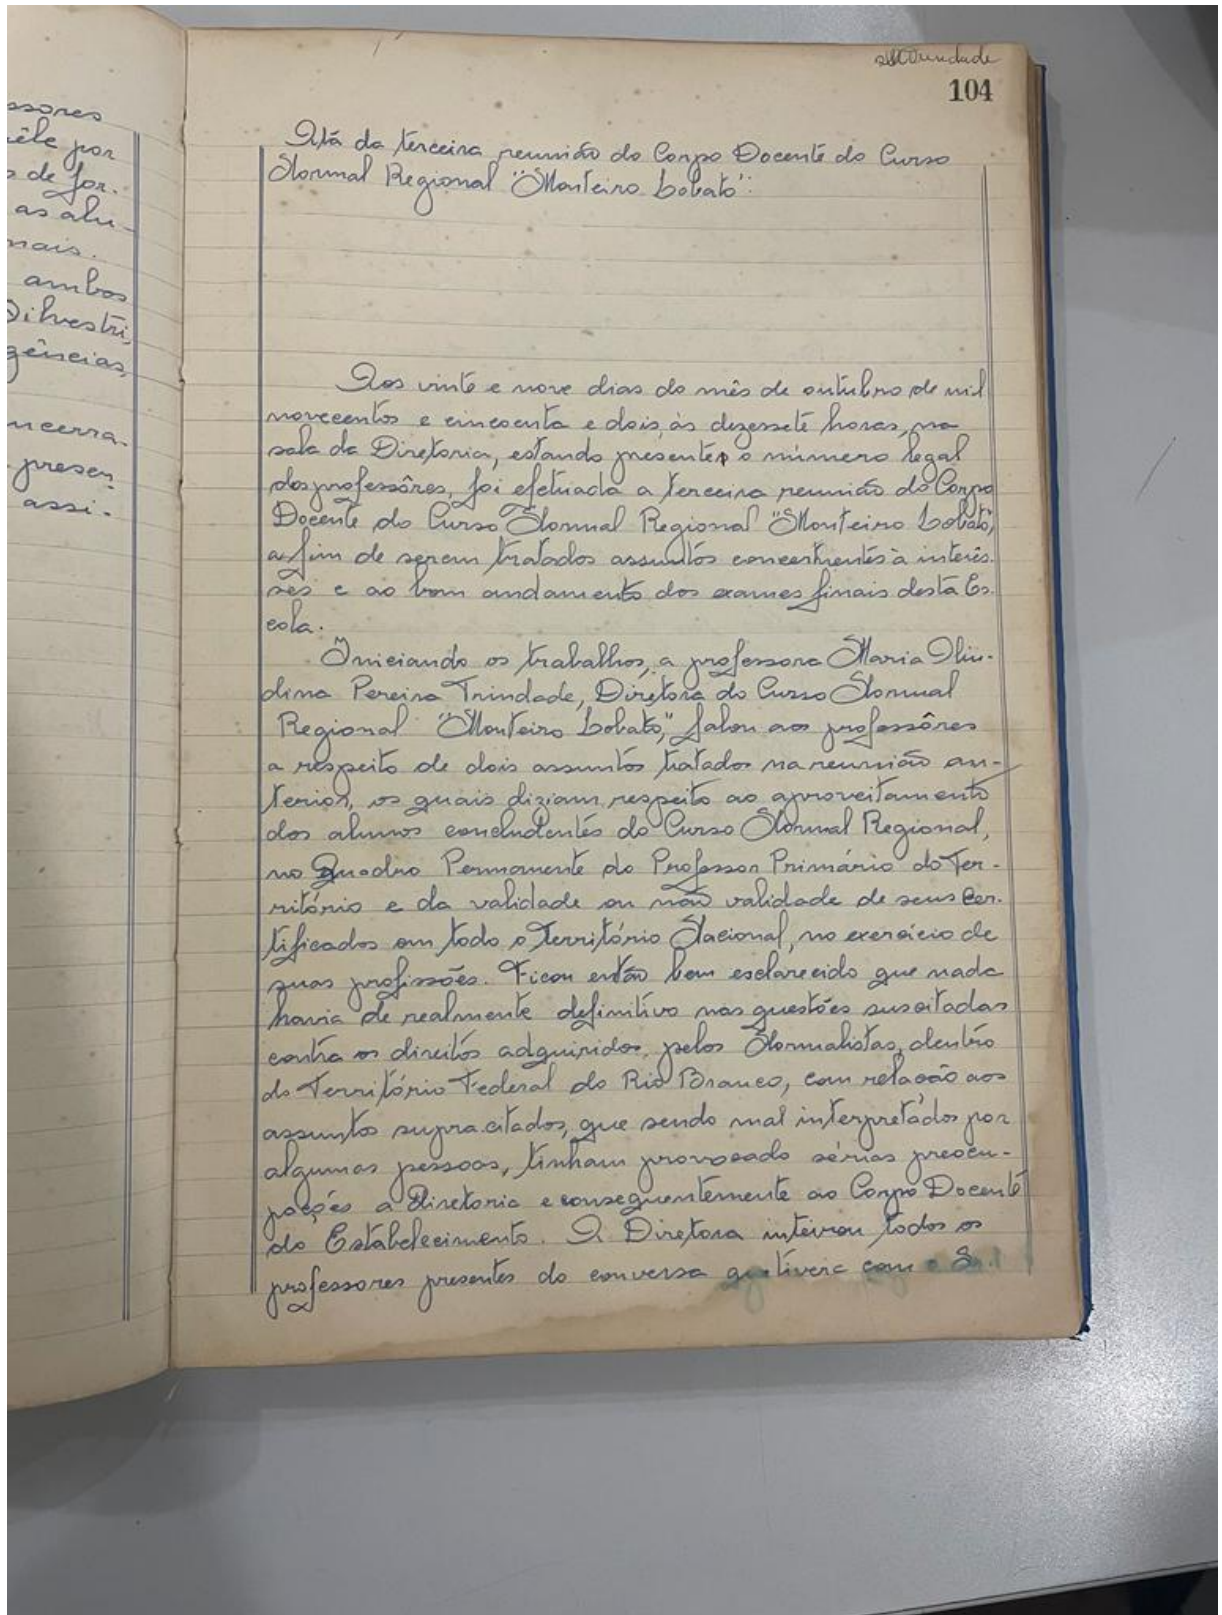 ssores
êle por
s de for-
as alu-
mais.
ambos
Silvestri,
gências,
ncerra-
presen-
assi-
Trindade
104
Atá da terceira reunião do Corpo Docente do Curso
Normal Regional "Monteiro Lobato".
Aos vinte e nove dias do mês de outubro de mil
novecentos e cincoenta e dois, às dezessete horas, na
sala da Diretoria, estando presente o número legal
dos professôres, foi efetuada a terceira reunião do Corpo
Docente do Curso Normal Regional "Monteiro Lobato",
a fim de serem tratados assuntos concernentes à interês-
ses e ao bom andamento dos exames finais desta Es-
cola.
Iniciando os trabalhos, a professora Maria Olin-
dina Pereira Trindade, Diretora do Curso Normal
Regional "Monteiro Lobato", falou aos professôres
a respeito de dois assuntos tratados na reunião an-
terior, os quais diziam respeito ao aproveitamento
dos alunos concludentes do Curso Normal Regional,
no Quadro Permanente do Professor Primário do Ter-
ritório e da validade ou não validade de seus cer-
tificados em todo o Território Nacional, no exercício de
suas profissões. Ficou então bem esclarecido que nada
havia de realmente definitivo nas questões suscitadas
contra os direitos adquiridos, pelos Normalistas, dentro
do Território Federal do Rio Branco, com relação aos
assuntos supra.citados, que sendo mal interpretados por
algumas pessoas, tinham provocado sérias preocu-
pações a Diretoria e consequentemente ao Corpo Docente
do Estabelecimento. A Diretora inteirou todos os
professores presentes do conversa que tivera com o S.